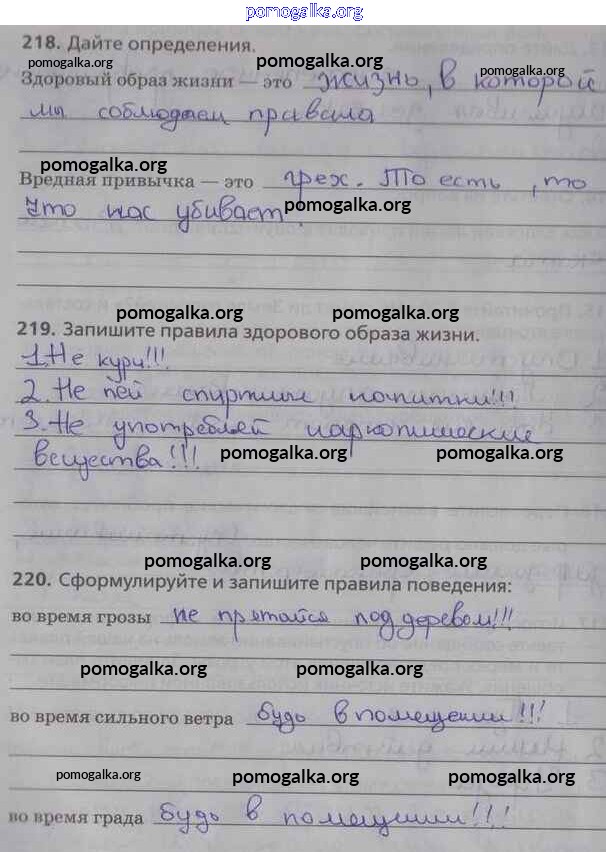 pomogalka.org
218. Дайте определения.
pomogalka.org pomogalka.org
Здоровый образ жизни — это жизнь, в которой
мы соблюдаем правила
pomogalka.org pomogalka.org pomogalka.org
Вредная привычка — это грех. То есть, то
что нас убивает.
pomogalka.org pomogalka.org
pomogalka.org pomogalka.org
219. Запишите правила здорового образа жизни.
1. Не кури!!!
pomogalka.org pomogalka.org
2. Не пей спиртные напитки!!!
3. Не употребляй наркотические
вещества!!!
pomogalka.org pomogalka.org
pomogalka.org pomogalka.org
220. Сформулируйте и запишите правила поведения:
во время грозы не прятайся под деревом!!!
pomogalka.org pomogalka.org pomogalka.org
во время сильного ветра будь в помещении!!!
pomogalka.org pomogalka.org pomogalka.org
во время града будь в помещении!!!